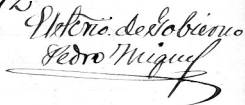 El Srio. de Gobierno
Pedro Miguel